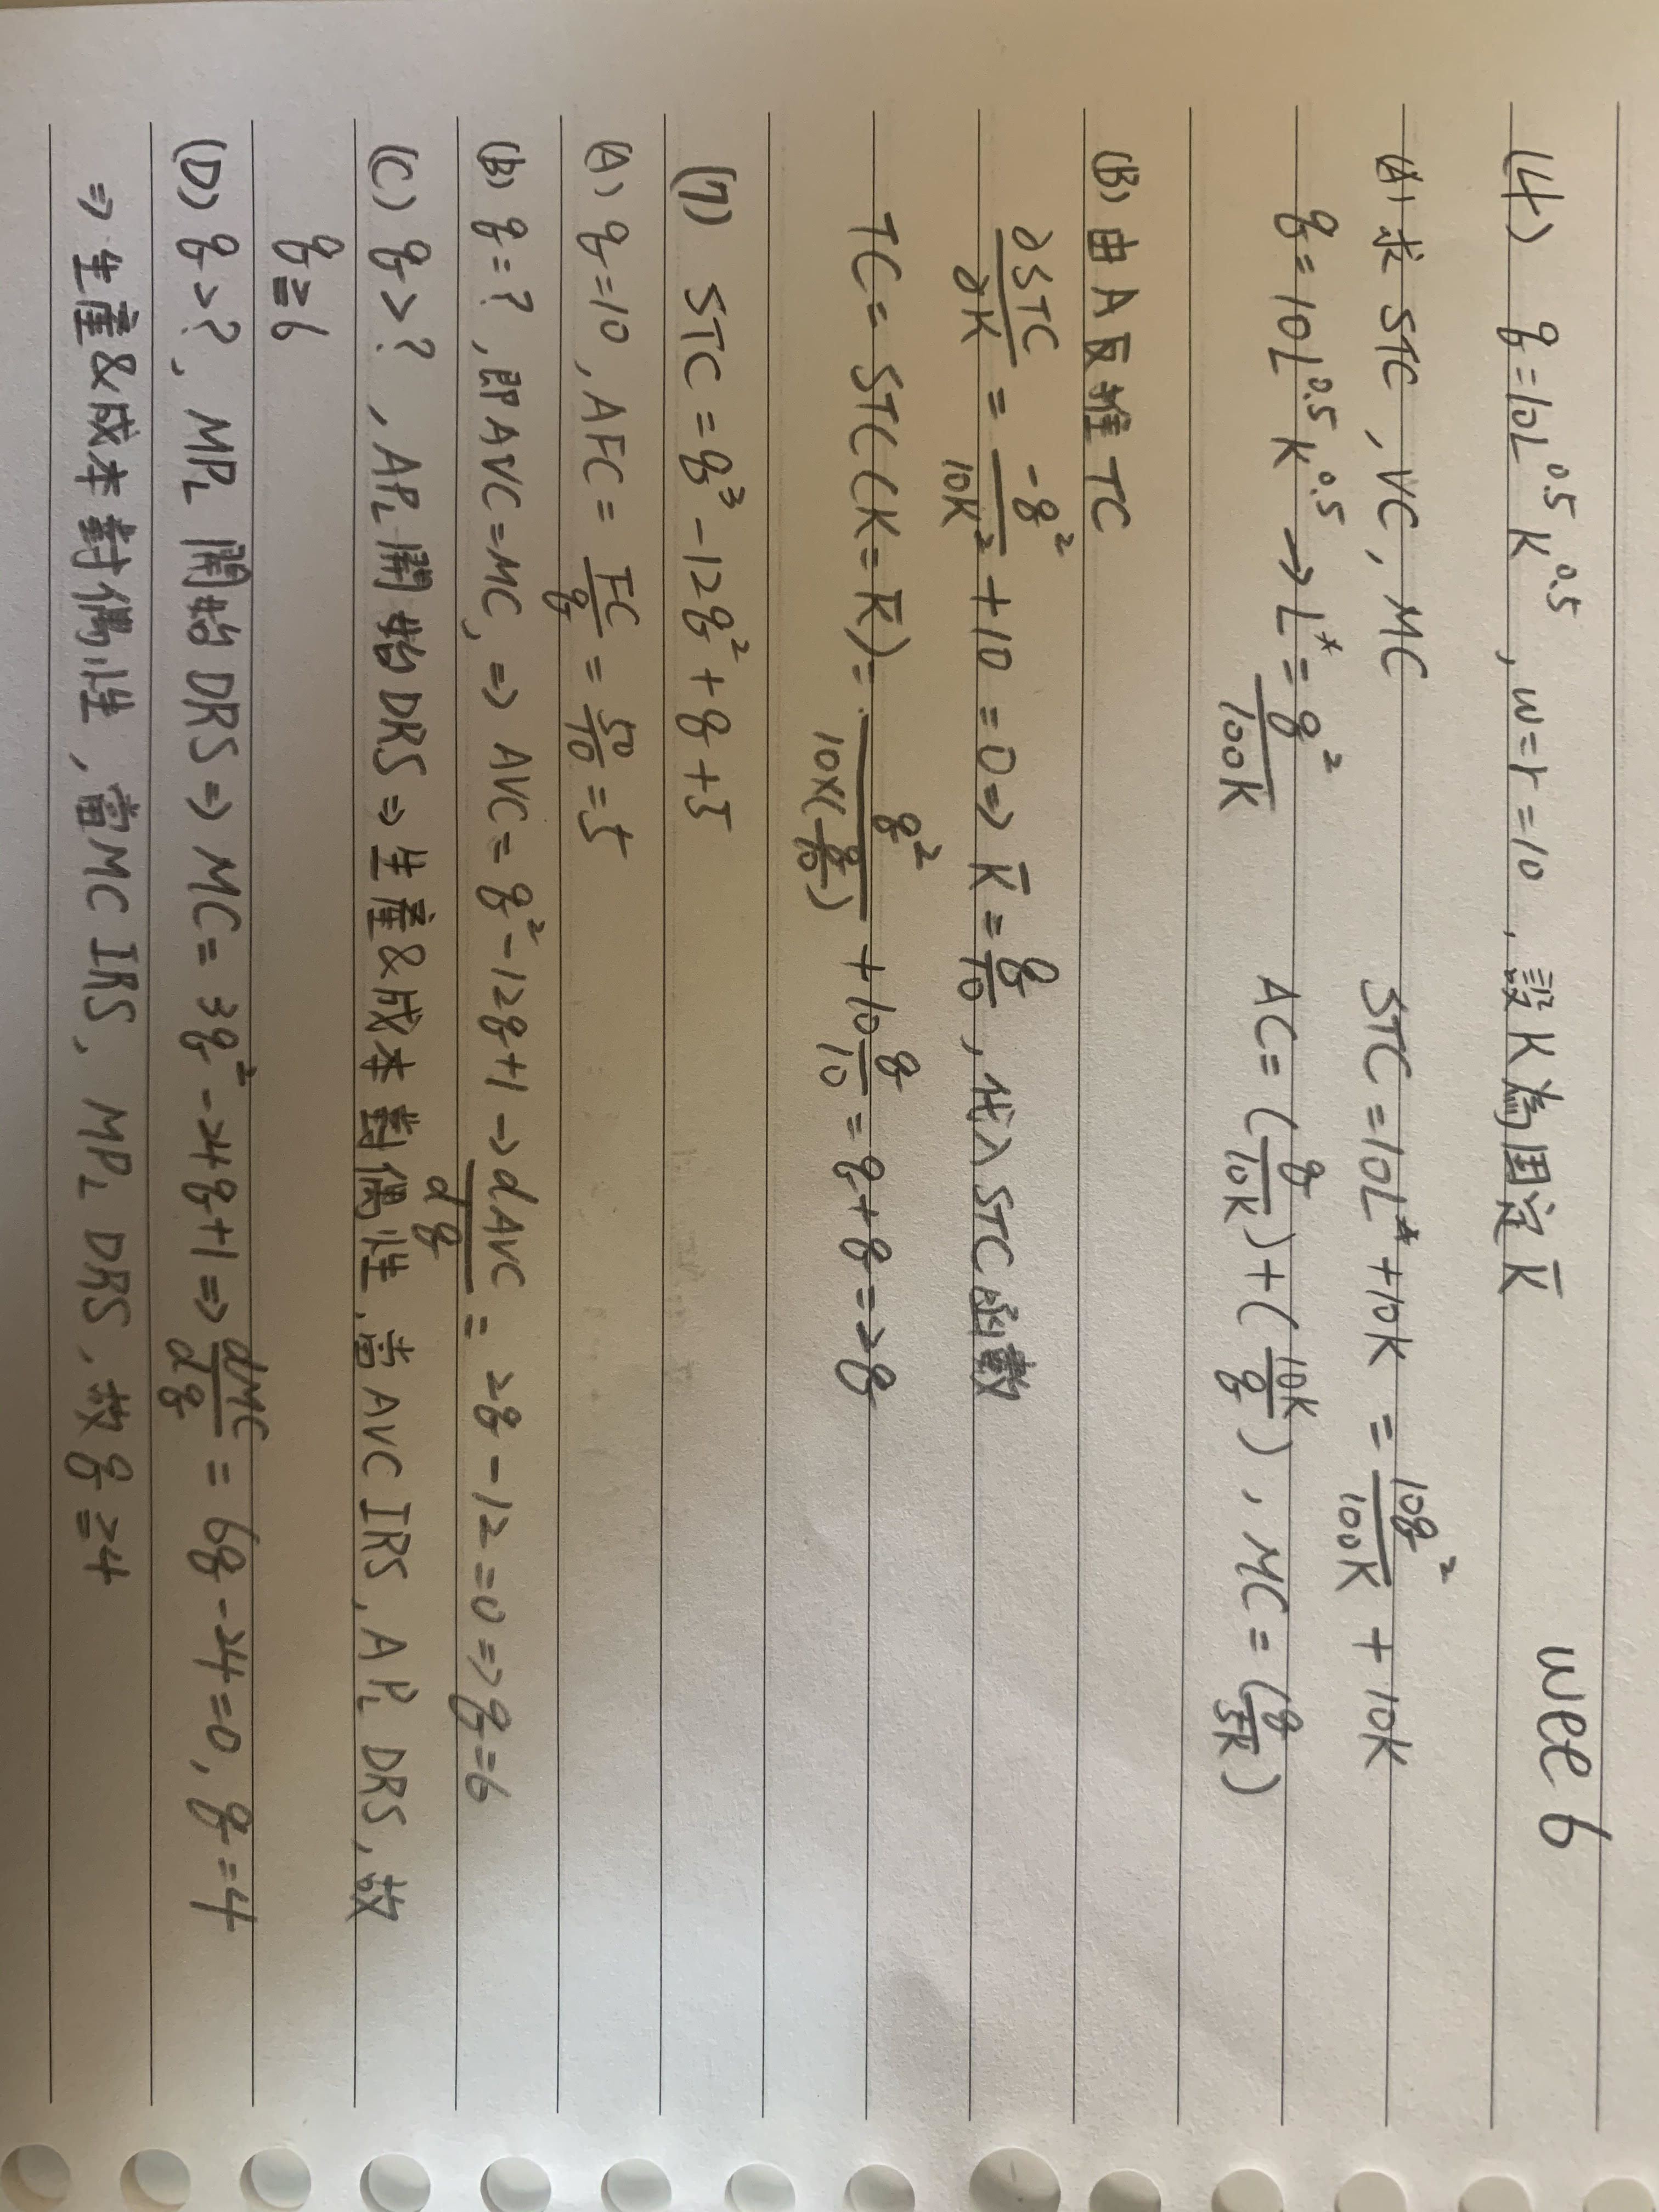 wee 6
(4) q=10L^0.5 K^0.5 , w=r=10 , 設K為固定K̄
(A) 求 STC , VC , MC
q=10L^0.5 K^0.5 → L*= q²/100K
STC=10L*+10K = 10q²/100K + 10K
AC= (q/10K)+(10K/q) , MC=(q/5K)
(B) 由A反推TC
∂STC/∂K = -q²/10K² +10 =0 ⇒ K̄=q/10 , 代入STC函數
TC= STC(K=K̄)= q²/10×(q/10) +10 q/10 = q+q=2q
(7) STC=q³-12q²+q+5
(A) q=10 , AFC= FC/q = 50/10 =5
(B) q=? , 即AVC=MC, ⇒ AVC= q²-12q+1 → dAVC/dq = 2q-12=0 ⇒ q=6
(C) q>? , AP_L 開始DRS ⇒ 生產&成本對偶性, 當AVC IRS, AP_L DRS, 故
q≧6
(D) q>?, MP_L 開始DRS ⇒ MC= 3q²-24q+1 ⇒ dMC/dq = 6q-24=0, q=4
⇒ 生產&成本對偶性, 當MC IRS, MP_L DRS, 故q≧4